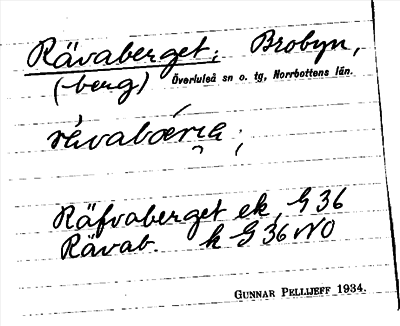 Rävaberget; Brobyn,
(berg) Överluleå sn o. tg, Norrbottens län.
Räfvaberget ek G 36
Rävab. k G 36 NO
GUNNAR PELLIJEFF 1934.